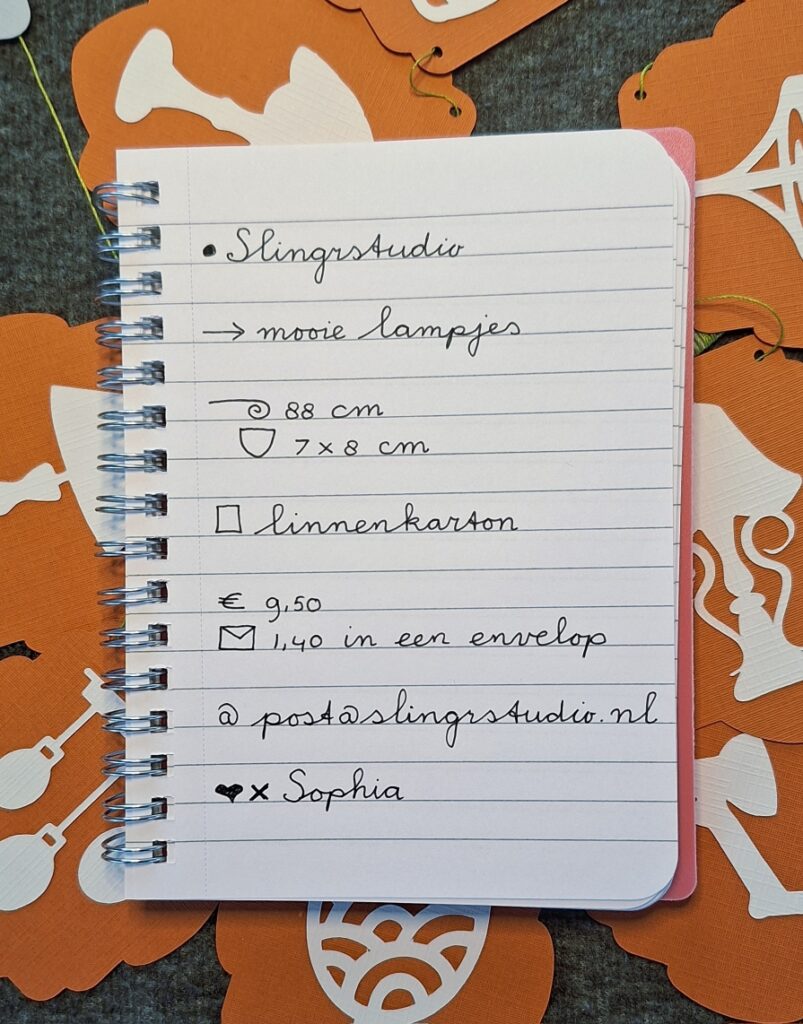 • Slingrstudio
→ mooie lampjes
88 cm
7 x 8 cm
linnenkarton
€ 9,50
1,40 in een envelop
@ post@slingrstudio.nl
♥ x Sophia